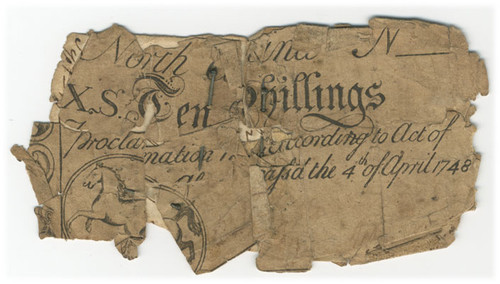 North N
X.S. Ten Shillings
Proclamation according to Act of
pass'd the 4th of April 1748